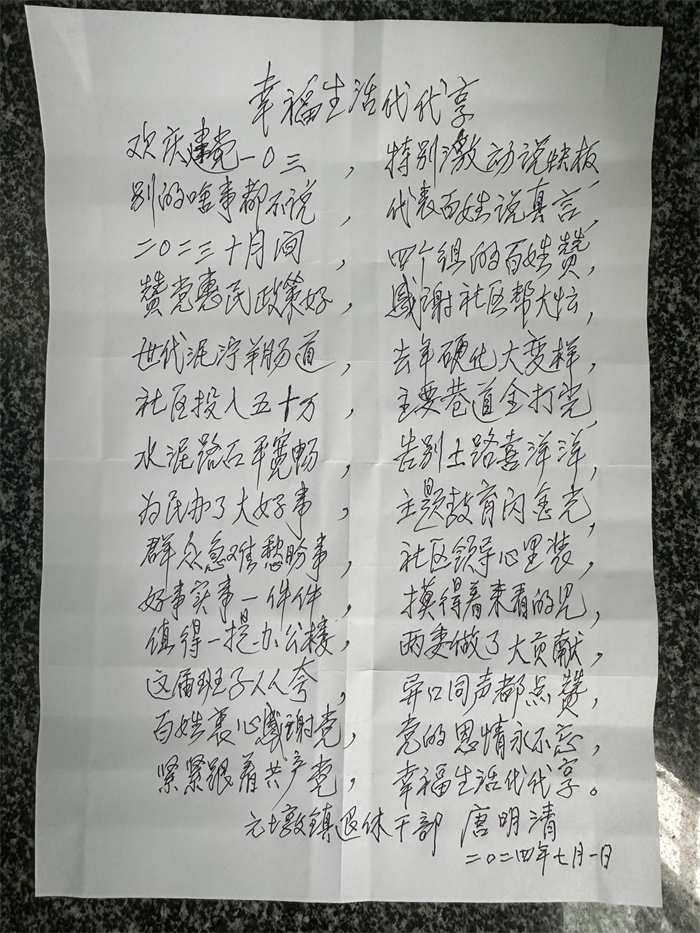 幸福生活代代享
欢庆建党一0三，特别激动说快板，
别的啥事都不说，代表百姓说真言，
二0二三十月间，四个组的百姓赞，
赞党惠民政策好，感谢社区帮大忙，
世代泥泞羊肠道，去年硬化大变样，
社区投入五十万，主要巷道全打完，
水泥路面平宽畅，告别土路喜洋洋，
为民办了大好事，主题教育闪金光，
群众急难愁盼事，社区领导心里装，
好事实事一件件，摸得着来看的见，
值得一提办公楼，两委做了大贡献，
这届班子人人夸，异口同声都点赞，
百姓衷心感谢党，党的恩情永不忘，
紧紧跟着共产党，幸福生活代代享。
元墩镇退休干部 唐明清
二0二四年七月一日